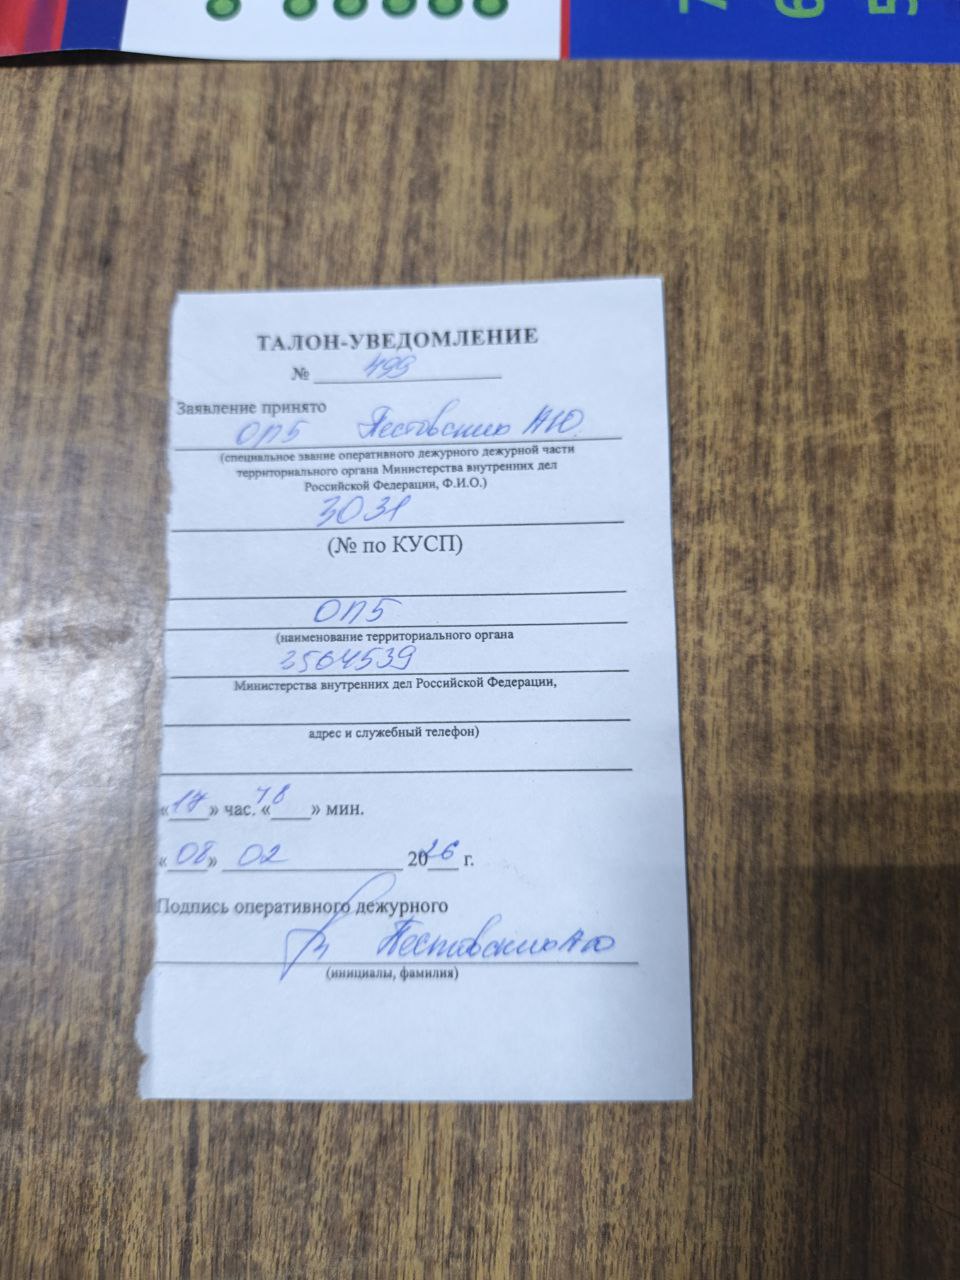 7 6 5
ТАЛОН-УВЕДОМЛЕНИЕ
№ 499
Заявление принято
ОП5 Пестовских А Ю.
(специальное звание оперативного дежурного дежурной части
территориального органа Министерства внутренних дел
Российской Федерации, Ф.И.О.)
3031
(№ по КУСП)
ОП5
(наименование территориального органа
2564539
Министерства внутренних дел Российской Федерации,
адрес и служебный телефон)
«17» час. «18» мин.
«08» 02 2026 г.
Подпись оперативного дежурного
Пестовских А Ю
(инициалы, фамилия)